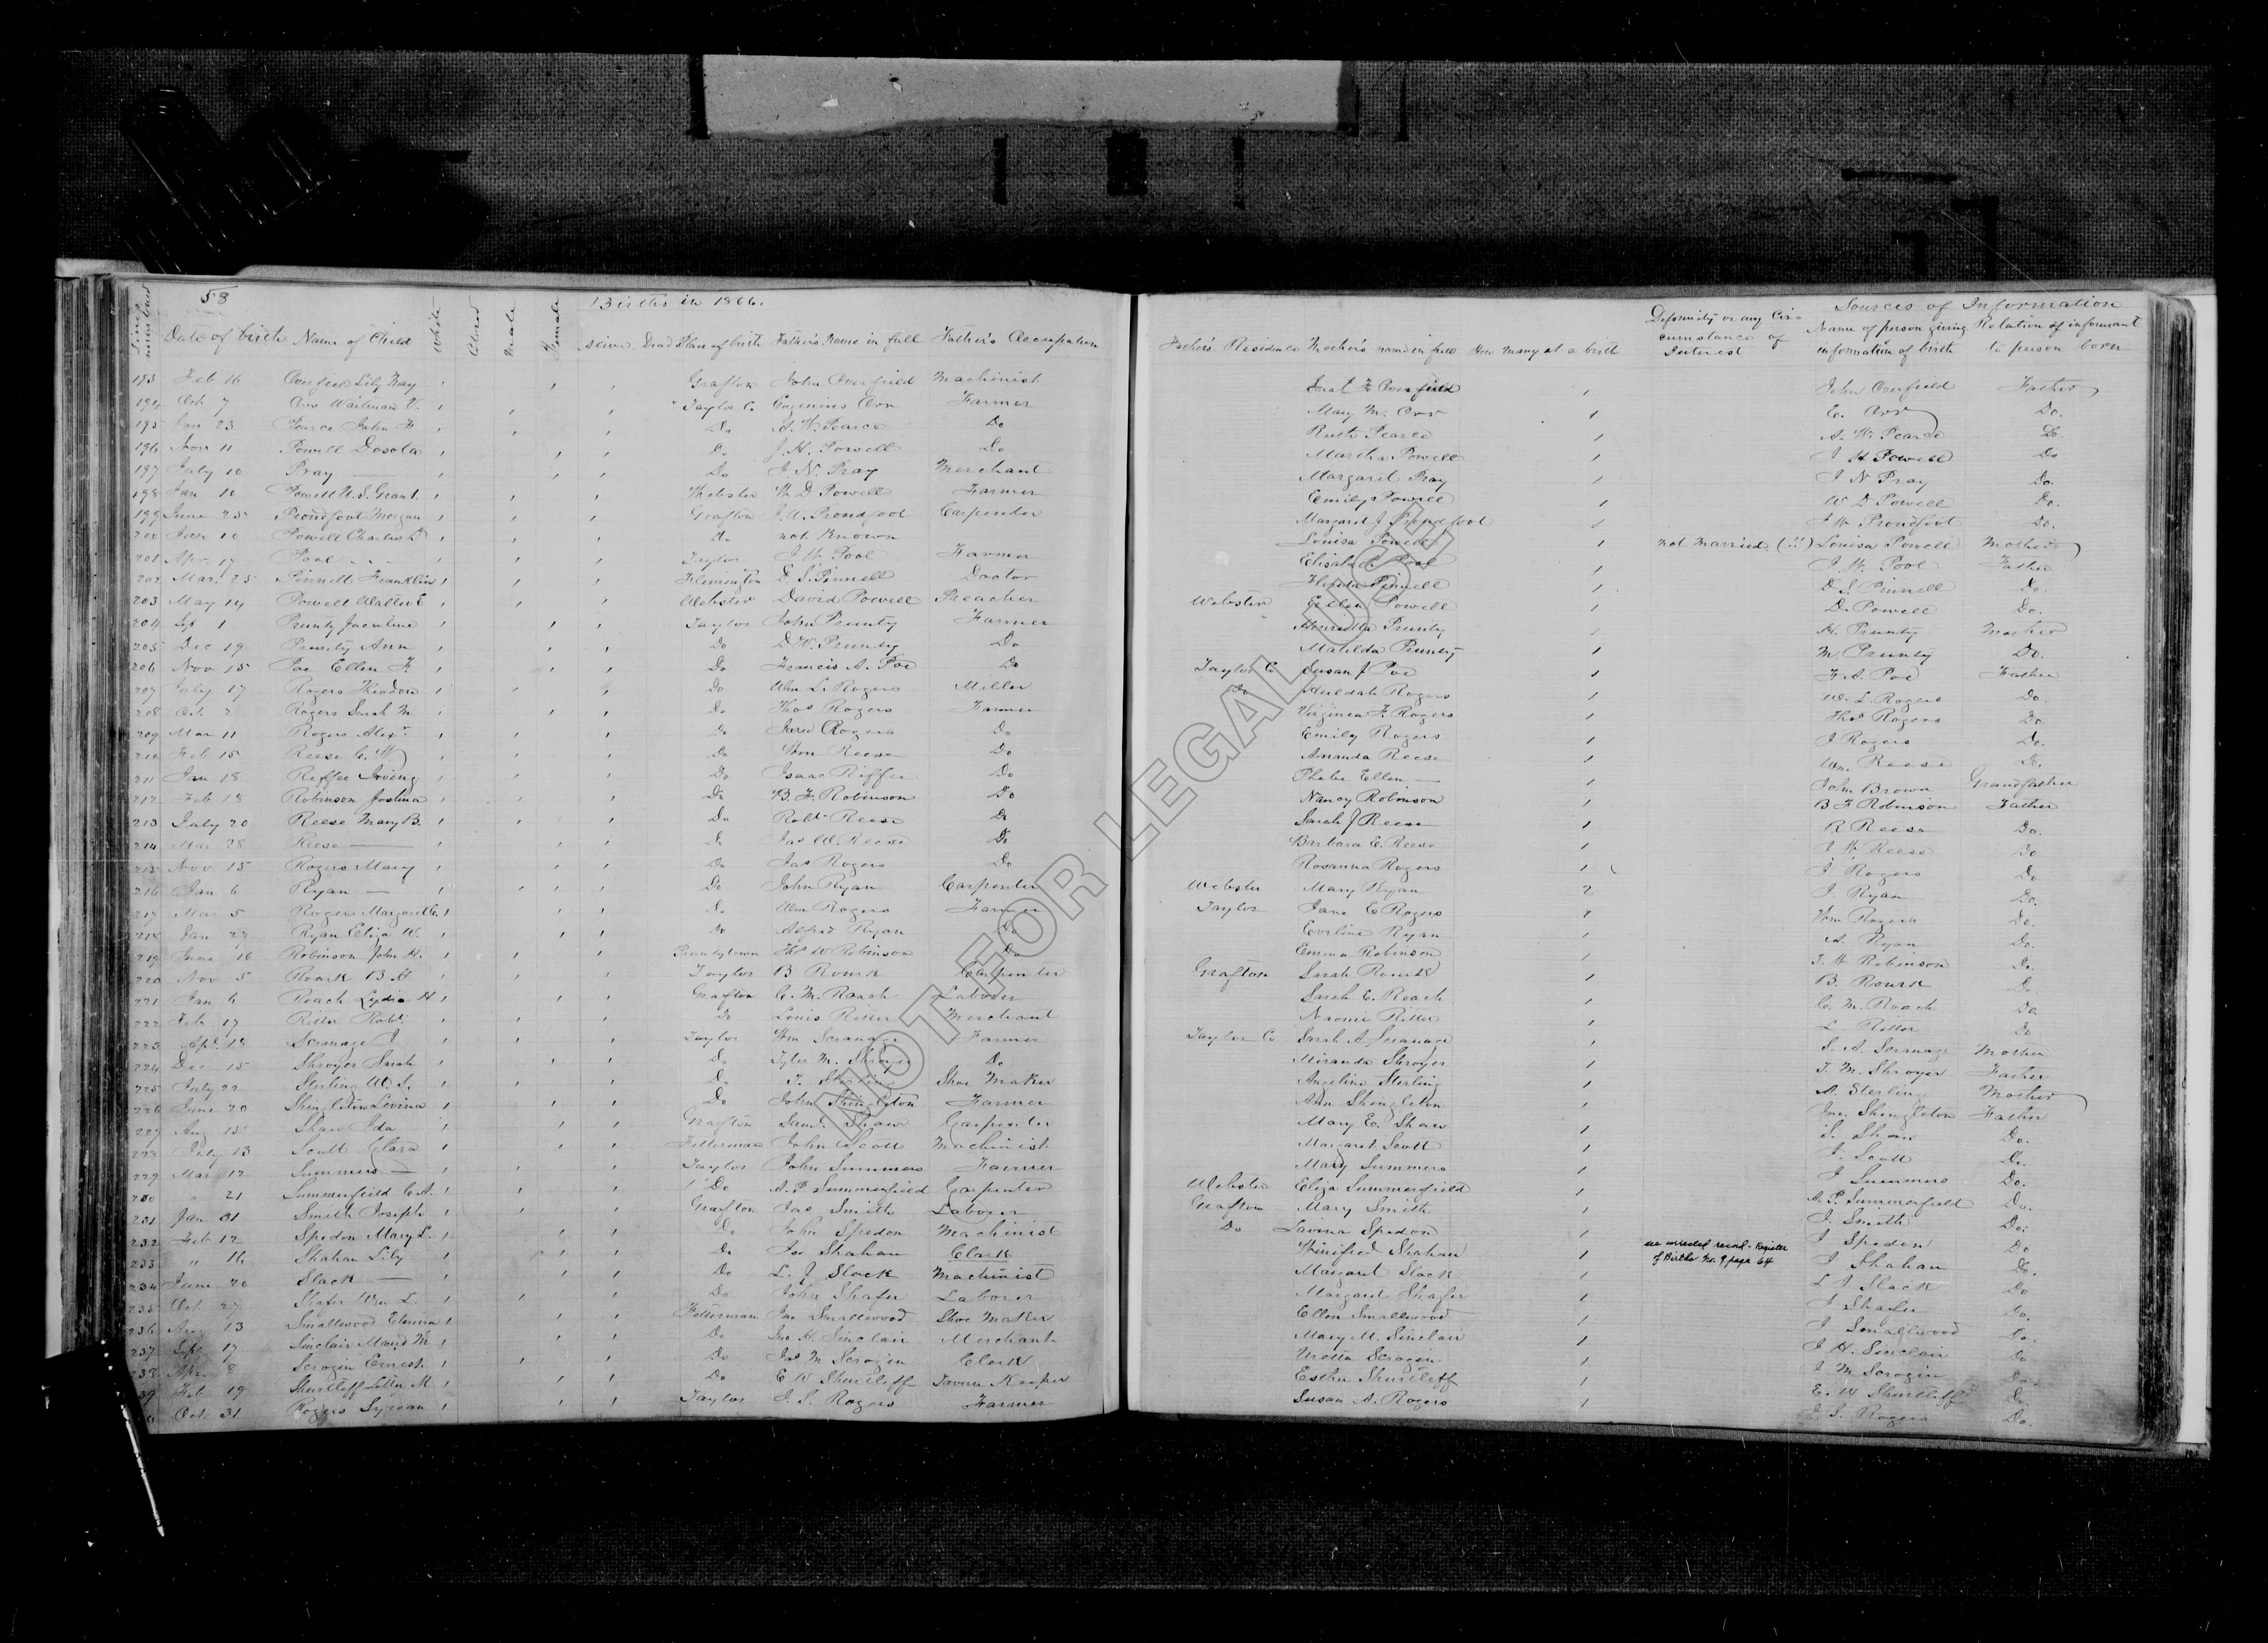 58
Births in 1866.
Sources of Information
Lines numbered Date of birth Name of Child White Colored Male Female Alive Dead Place of birth Father's Name in full Father's Occupation Father's Residence Mother's name in full How many at a birth Deformity or any Circumstance of Interest Name of person giving information of birth Relation of informant to person born
193 Feb 16 Lily May Grafton John Overfield Machinist 1 John Father
194 Oct 7 Orr Waitman V. Taylor C. Eugenius Orr Farmer Mary M. Orr 1 E. Orr Do.
195 Jan 23 Pearce John F Do A. W. Pearce Do Ruth Pearce 1 A. W. Pearce Do.
196 Nov 11 Powell Dosola Do J. H. Powell Do Martha Powell 1 J H Powell Do
197 July 10 Pray Do J. N. Pray Merchant Margaret Pray 1 J N Pray Do.
198 Jan 10 Powell U. S. Grant Webster W. D. Powell Farmer Emily Powell 1 W D Powell Do.
199 June 25 Proudfoot Morgan Grafton J. W. Proudfoot Carpenter Margaret J Proudfoot 1 J W Proudfoot Do.
200 Jan 10 Powell Charles D Do not Known Louisa Powell 1 not married. (!!) Louisa Powell Mother
201 Apr. 17 Pool Taylor J. W. Pool Farmer Elizabeth Pool 1 J. W. Pool Father
202 Mar. 25 Pinnell Franklin Flemington D. S. Pinnell Doctor Pinnell 1 D. S. Pinnell Do.
203 May 14 Powell Walter E Webster David Powell Preacher Webster Ellen Powell 1 D. Powell Do.
204 Sep 1 Prunty Jacaline Taylor John Prunty Farmer " Henrietta Prunty 1 H. Prunty Mother
205 Dec 19 Prunty Ann Do D. W. Prunty Do Matilda Prunty 1 M. Prunty Do.
206 Nov 15 Poe Ellen F. Do Francis A. Poe Do Taylor C. Susan J Poe 1 F. A. Poe Father
207 July 17 Rogers Theodore Do Wm L. Rogers Miller Do Huldah Rogers 1 W. L. Rogers Do.
208 Oct 2 Rogers Sarah M Do Thos Rogers Farmer Virginia F. Rogers 1 Thos Rogers Do
209 Mar 11 Rogers Alexr. Do Rogers Do Emily Rogers 1 J Rogers Do.
210 Feb 15 Reese C. W Do Wm Reese Do Amanda Reese 1 Wm. Reese Do.
211 Jan 18 Riffee Irving Do Isaac Riffee Do Phebe Ellen 1 John Brown Grandfather
212 Feb 18 Robinson Joshua Do B. F. Robinson Do Nancy Robinson 1 B F Robinson Father
213 July 20 Reese Mary B. Do Robt. Reese Do Sarah J Reese 1 R Reese Do.
214 Mar 28 Reese Do Jas W. Reese Do Barbara E. Reese 1 J W Reese Do
215 Nov 15 Rogers Mary Do Jas Rogers Do Rosanna Rogers 1 J Rogers Do
216 Jan 6 Ryan Do John Ryan Carpenter Webster Mary Ryan 2 J Ryan Do.
217 Mar 5 Rogers Margaret C. Do Wm Rogers Farmer Taylor Jane C Rogers 1 Wm Rogers Do.
218 Jan 27 Ryan Eliza W. Do Alfred Ryan Do Eveline Ryan 1 A. Ryan Do.
219 June 16 Robinson John H. Pruntytown Thos W Robinson Do Emma Robinson 1 T. W Robinson Do.
220 Nov 5 Rourk B. H Taylor B Rourk Carpenter Grafton Sarah Rourk 1 B. Rourk Do.
221 Jan 6 Roach Lydia H Grafton C. M. Roach Laborer Sarah E. Roach 1 C. M. Roach Do.
222 Feb 17 Ritter Robt. Do Louis Ritter Merchant Naomi Ritter 1 L. Ritter Do
223 Apl. 18 Scranage J. Taylor Wm Scranage Farmer Taylor C. Sarah A Scranage 1 S. A. Scranage Mother
224 Dec 15 Shroyer Sarah Do Tyler M. Shroyer Do Miranda Shroyer 1 T. M. Shroyer Father
225 July 22 Sterling W. S. Do T. Sterling Shoe Maker Angeline Sterling 1 A. Sterling Mother
226 June 20 Shingleton Levina Do John Shingleton Farmer Ann Shingleton 1 Jno. Shingleton Father
227 Aug 15 Shaw Ida Grafton Saml. Shaw Carpenter Mary E. Shaw 1 S. Shaw Do.
228 July 13 Scott Clara Fetterman John Scott Machinist Margaret Scott 1 J. Scott Do.
229 Mar 12 Summers Taylor John Summers Farmer Mary Summers 1 J Summers Do.
230 " 21 Summerfield C A. Do A. P Summerfield Carpenter Webster Eliza Summerfield 1 A. P. Summerfield Do.
231 Jan 31 Smith Joseph Grafton Jas Smith Laborer Grafton Mary Smith 1 J. Smith Do.
232 Feb 12 Spedon Mary L. Do John Spedon Machinist Do Lavina Spedon J Spedon Do
233 " 16 Shahan Lily Do Jos Shahan Clerk Winifred Shahan 1 see corrected record - Register of Births No. 9 page 64 J Shahan Do.
234 June 20 Slack Do L. J Slack Machinist Margaret Slack 1 L J Slack Do
235 Oct 27 Shafer Wm L. Do John Shafer Laborer Margaret Shafer 1 J Shafer Do.
236 Aug 13 Smallwood Fetterman Jno Smallwood Shoe Maker Ellen Smallwood 1 J Smallwood Do.
237 Sept 17 Sinclair Maud M Do Jno H. Sinclair Merchant Mary M. Sinclair 1 J H. Sinclair Do
238 Apr. 8 Scrogin Ernest Do Jas M Scrogin Clerk Scrogin 1 J M Scrogin Do.
39 Feb 19 Shurtleff Letta M Do E W Shurtleff Tavern Keeper Esther Shurtleff 1 E. W Shurtleff Do.
Oct 31 Rogers Taylor J. S. Rogers Farmer Susan A. Rogers 1 J. S. Rogers Do.
NOT FOR LEGAL USE